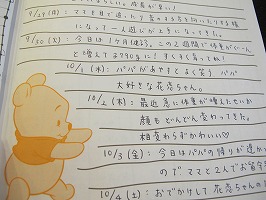 9/29(月): ママを目で追ったり
になって一人遊びが上手になってきた。
9/30(火): 今日は1ヶ月健診。この2週間で体重がぐーん
と増えて
10/1(水): パパがあやすとよく笑う。パパ
大好きな花恋ちゃん。
10/2(木): 最近急に体重が増えたせいか
顔もどんどん変わってきた。
相変わらずかわいい♡
10/3(金): 今日はパパの帰りが遅かった
のでママと2人でお留守
10/4(土): おでかけして花恋ちゃんの